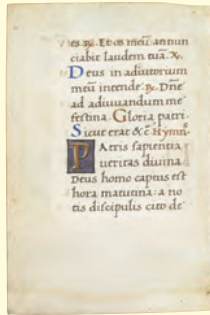 es. ꝶ. Et os meū annun
ciabit laudem tuā. ℣.
Deus in adiutorium
meū intende. ꝶ. Dn̄e
ad adiuuandum me
festina. Gloria patri.
Sicut erat &c̄. Hymnꝰ
PAtris sapientia
ueritas diuina
Deus homo captus est
hora matutina: a no
tis discipulis cito de